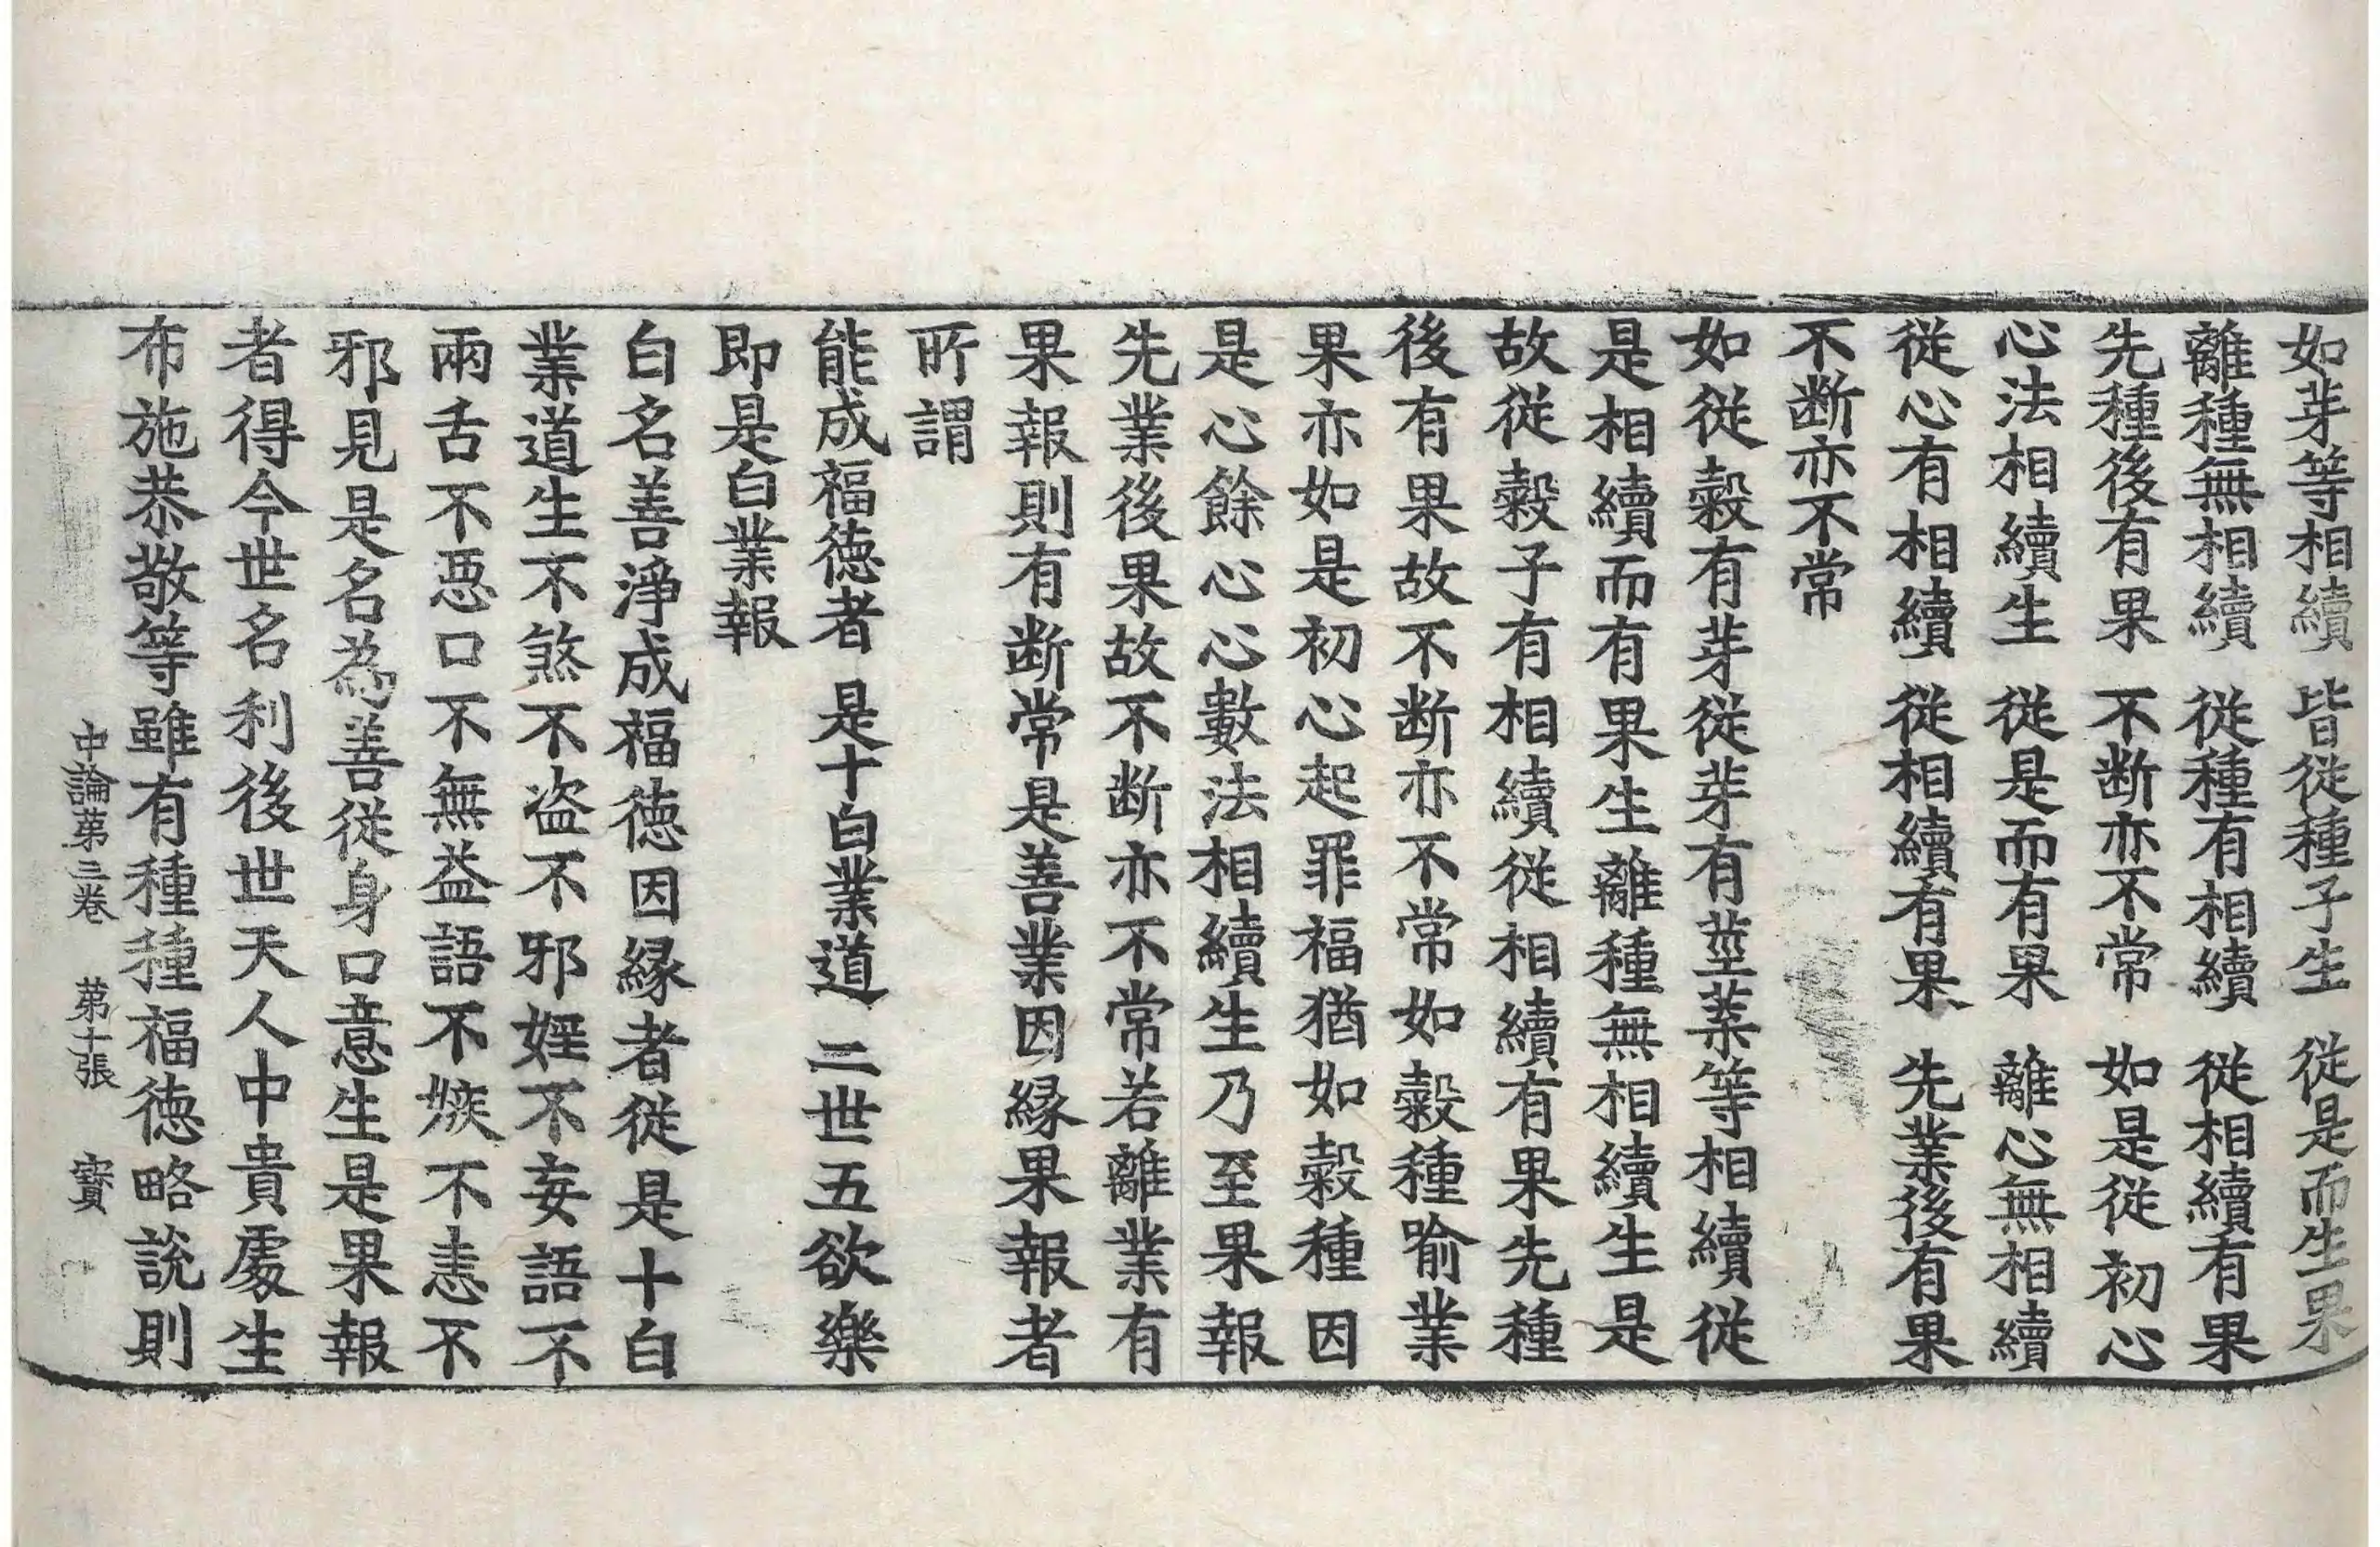 如芽等相續　皆從種子生　從是而生果
離種無相續　從種有相續　從相續有果
先種後有果　不断亦不常　如是從初心
心法相續生　從是而有果　離心無相續
從心有相續　從相續有果　先業後有果
不断亦不常
如從穀有芽從芽有莖葉等相續從
是相續而有果生離種無相續生是
故從穀子有相續從相續有果先種
後有果故不断亦不常如穀種喻業
果亦如是初心起罪福猶如穀種因
是心餘心心數法相續生乃至果報
先業後果故不断亦不常若離業有
果報則有断常是善業因緣果報者
所謂
能成福徳者　是十白業道　二世五欲樂
即是白業報
白名善淨成福徳因緣者從是十白
業道生不煞不盗不邪婬不妄語不
兩舌不惡口不無益語不嫉不恚不
邪見是名為善從身口意生是果報
者得今世名利後世天人中貴處生
布施恭敬等雖有種種福徳略說則
中論第三卷　第十張　寶